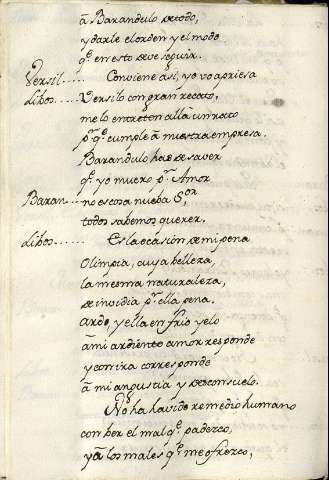 â Barandulo de todo,
y darle el orden y el modo
q.e en esto deve seguir.
Versil..... Conviene asi, yo vo apriesa
Libos..... Versilo con gran recato,
me lo entreten allâ un rato
p.r q.e cumple â nuestra empresa.
Barandulo has de saver
q.e yo muero p.r Amor
Baran.... no es cosa nueba S.or
todos sabemos querer.
Libos..... Es la ocasion de mi pena
Olimpia, cuya belleza,
la mesma naturaleza,
de invidia p.r ella pena.
Ardo, y ella en frio yelo
â mi ardiente amor responde
y con ira corresponde
â mi angustia y desconsuelo.
No ha havido remedio humano
con ber el mal q.e padezco,
y â los males q.e me ofrezco,